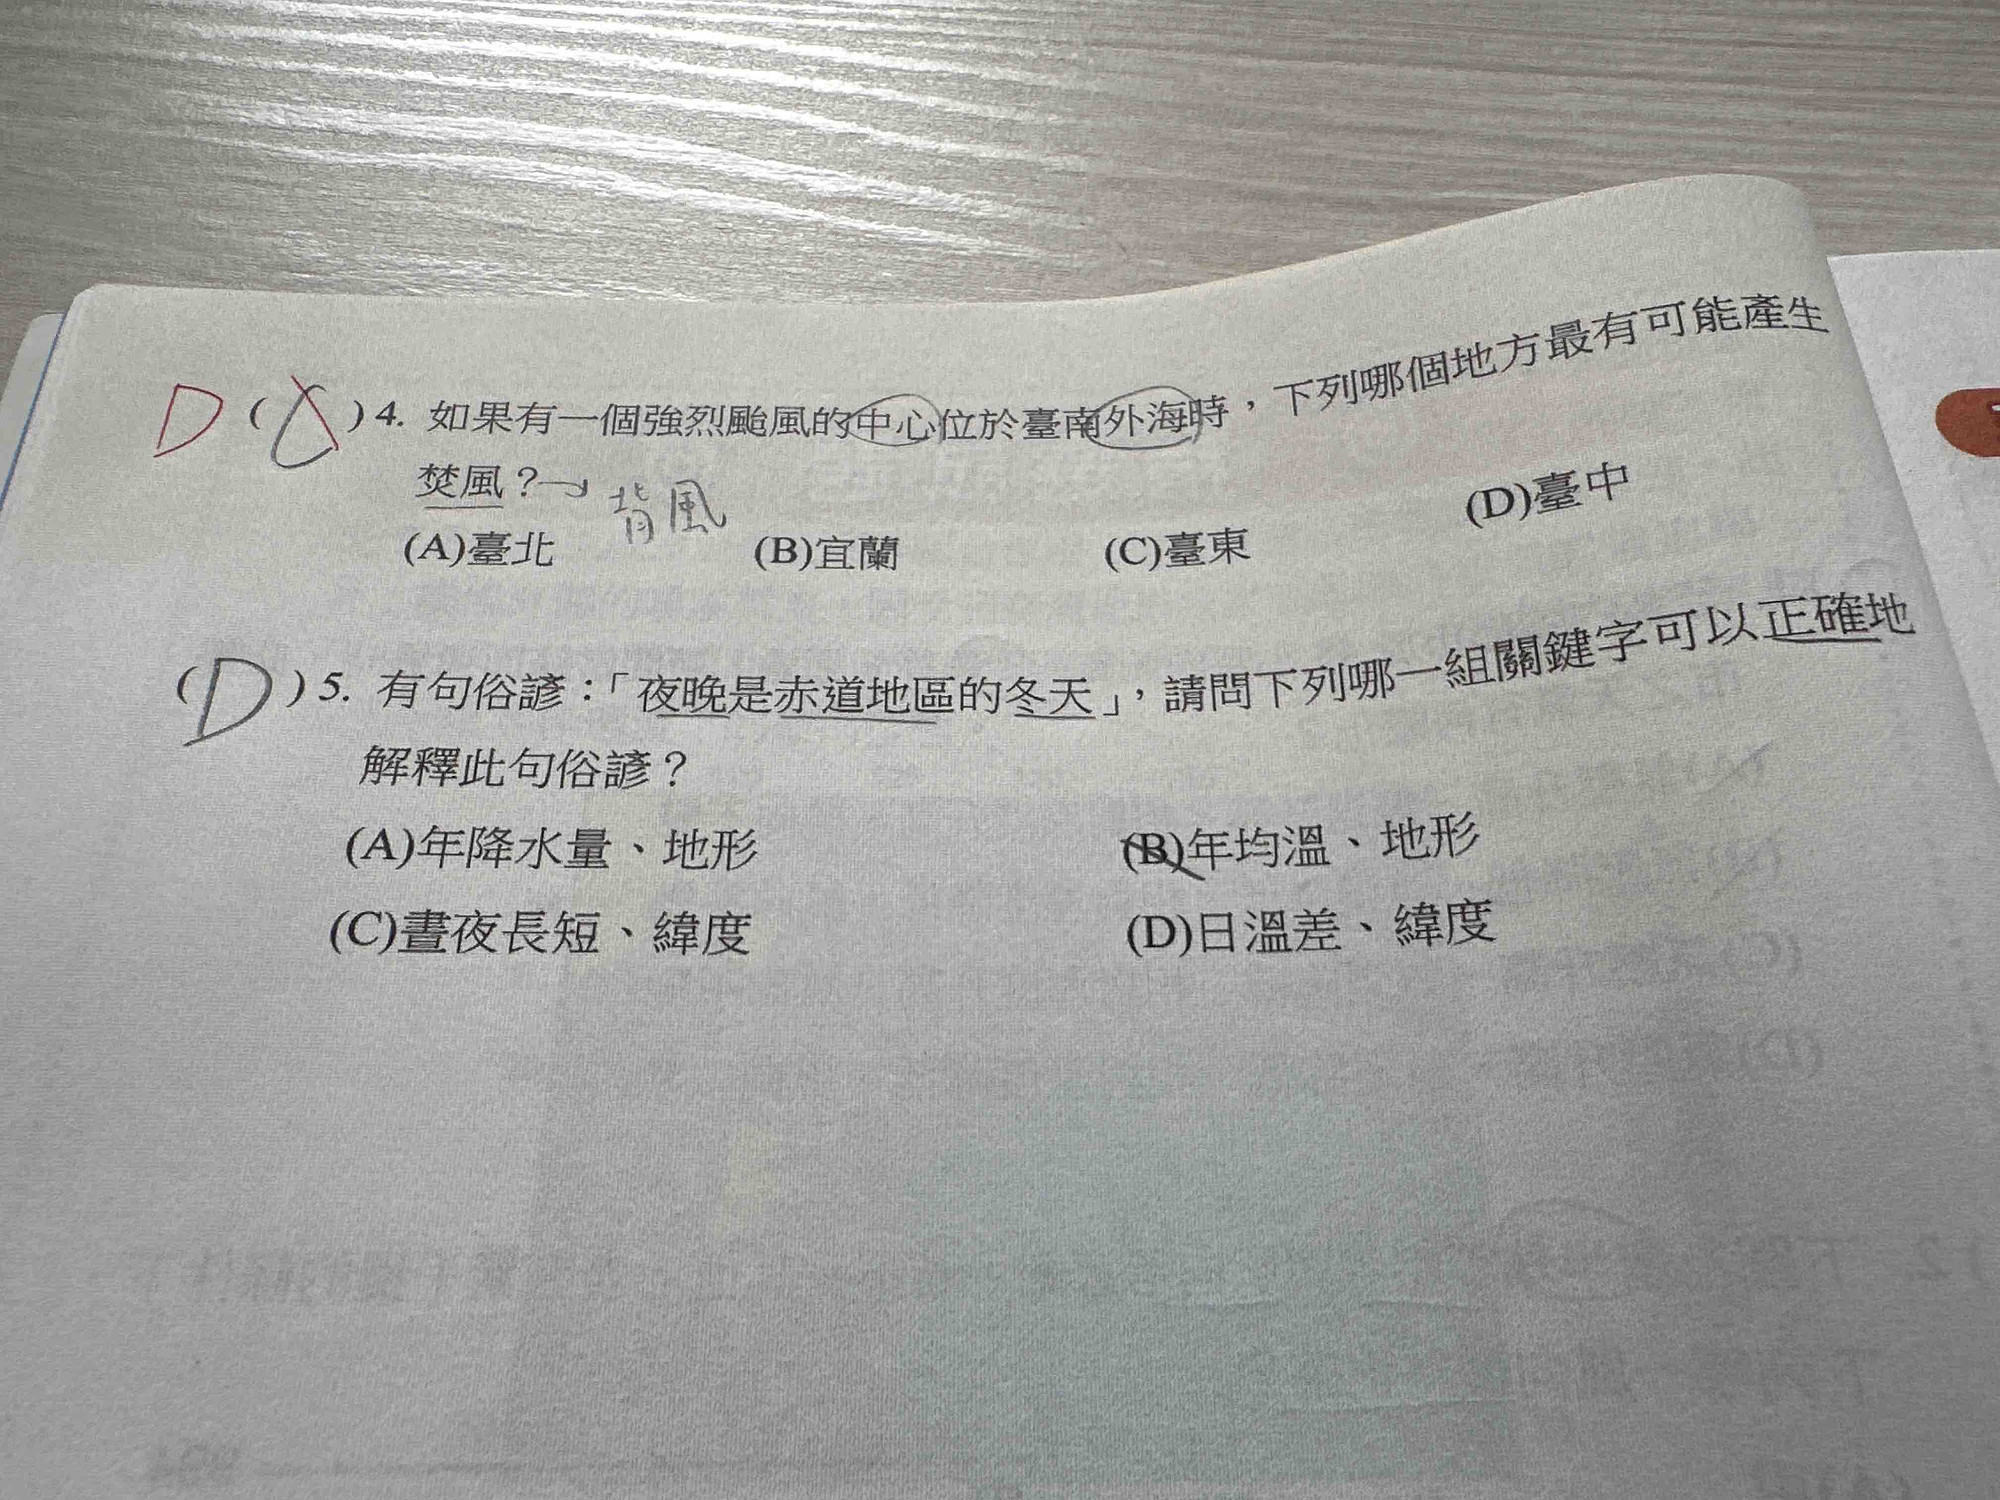 D ( ) 4. 如果有一個強烈颱風的中心位於臺南外海時，下列哪個地方最有可能產生
焚風？→背風
(A)臺北 (B)宜蘭 (C)臺東 (D)臺中
(D) 5. 有句俗諺：「夜晚是赤道地區的冬天」，請問下列哪一組關鍵字可以正確地
解釋此句俗諺？
(A)年降水量、地形 (B)年均溫、地形
(C)晝夜長短、緯度 (D)日溫差、緯度